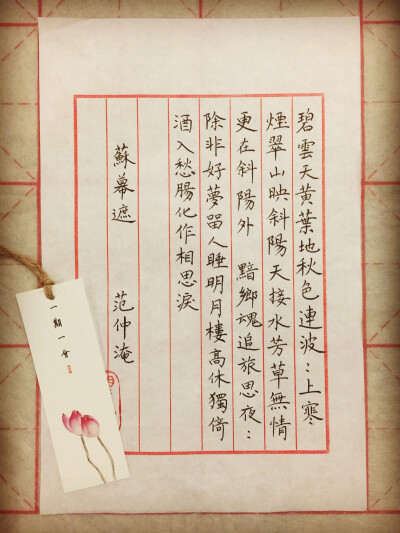 碧雲天黃葉地秋色連波：上寒
煙翠山映斜陽天接水芳草無情
更在斜陽外 黯鄉魂追旅思夜：
除非好夢留人睡明月樓高休獨倚
酒入愁腸化作相思淚
蘇幕遮 范仲淹
一期一會